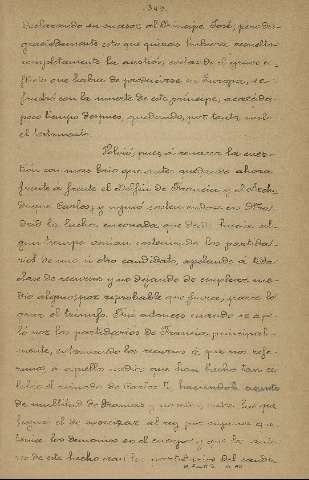 340
declarando su sucesor al Principe José, pero des-
graciadamente esto que quizás hubiera resuelto
completamente la cuestión, evitando el grave con-
flicto que había de producirse en Europa, se
frustró con la muerte de este príncipe, acaecida
poco tiempo después, quedando, por tanto nulo
el testamento.
Volvió, pues, á renacer la cues-
tión con mas brio que antes quedando ahora
frente á frente el Delfin de Francia y el Archi-
duque Carlos; y siguió sosteniendose en Ma-
drid la lucha enconada que desde hacia al-
gun tiempo venian sosteniendo los partida-
rios de uno ú otro candidato, apelando á toda
clase de recursos y no dejando de emplear me-
dio alguno, por reprobable que fuera, para lo-
grar el triunfo. Fué entonces cuando se ape-
ló por los partidarios de Francia, principal-
mente, entre los recursos á que nos refe-
rimos, á aquellos medios que han hecho tan cé-
lebre el reinado de Carlos II, haciendole asunto
de multitud de dramas y novelas,
fuese el de exorcizar al rey por suponer que
tenia los demonios en el cuerpo y que la
de este hecho eran los partidarios del candi-